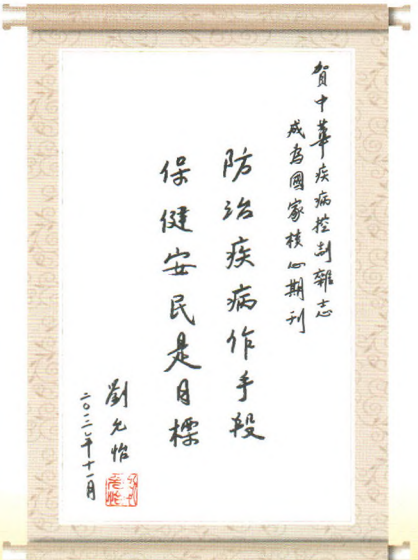 賀中華疾病控制雜志
成為國家核心期刊
防治疾病作手段
保健安民是目標
劉允怡
年十一月